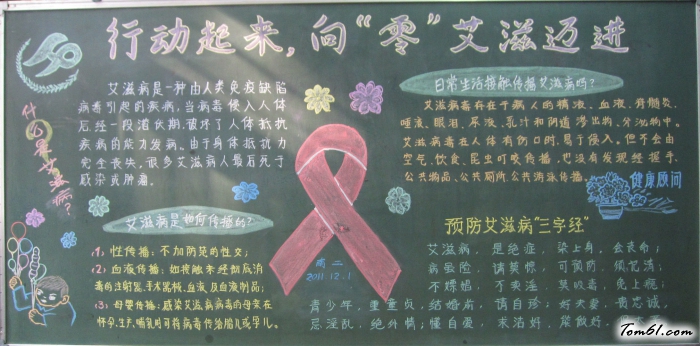 行动起来，向“零”艾滋迈进
什么是艾滋病？
艾滋病是一种由人类免疫缺陷
病毒引起的疾病，当病毒侵入人体
后经一段潜伏期，破坏了人体抵抗
疾病的能力发病。由于身体抵抗力
完全丧失，很多艾滋病人最后死于
感染或肿瘤。
艾滋病是如何传播的？
1；性传播：不加防范的性交；
2；血液传播：如接触未经彻底消
毒的注射器、手术器械、血液及血液制品；
3；母婴传播：感染艾滋病病毒的母亲在
怀孕、生产、哺乳时可将病毒传给胎儿或婴儿。
雨二
2011.12.1
日常生活接触传播艾滋病吗？
艾滋病毒存在于病人的精液、血液、脊髓炎、
唾液、眼泪、尿液、乳汁和阴道渗出物、分泌物中。
艾滋病毒在人体有伤口时，易于侵入。但不会由
空气、饮食、昆虫叮咬传播，也没有发现经握手、
公共物品、公共厕所、公共游泳传播。
健康顾问
预防艾滋病“三字经”
艾滋病，是绝症，染上身，会丧命；
病虽险，请莫惊，可预防，须记清；
不嫖娼，不卖淫，莫吸毒，免上瘾；
青少年，重童贞；结婚前，请自珍；好夫妻，贵忠诚，
忌淫乱，绝外情；懂自爱，
Tom61.com